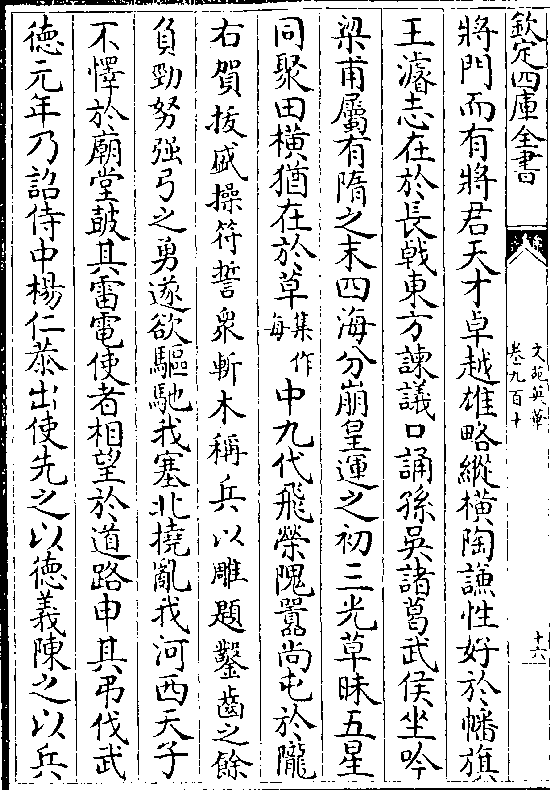 欽定四庫全書
文苑英華
卷九百十
十六
將門而有將君天才卓越雄略縱橫陶謙性好於幡旗
王濬志在於長戟東方諫議口誦孫吳諸葛武侯坐吟
梁甫屬有隋之末四海分崩皇運之初三光草昧五星
同聚田橫猶在於草集作海中九代飛榮隗囂尚屯於隴
右賀拔威操符誓衆斬木稱兵以雕題鑿齒之餘
負勁努强弓之勇遂欲驅馳我塞北撓亂我河西天子
不懌於廟堂皷其雷電使者相望於道路申其弔伐武
德元年乃詔侍中楊仁恭出使先之以德義陳之以兵